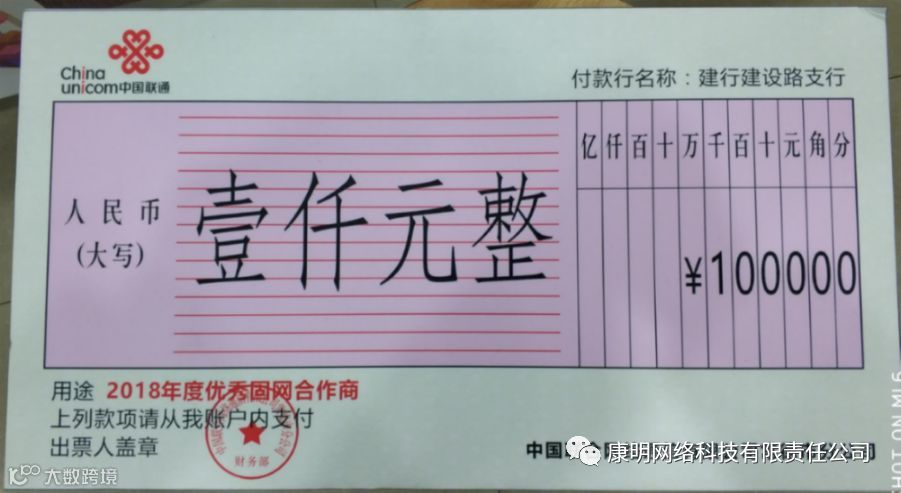 China
unicom中国联通
付款行名称：建行建设路支行
人民币
(大写)
壹仟元整
亿仟百十万千百十元角分
¥100000
用途 2018年度优秀固网合作商
上列款项请从我账户内支付
出票人盖章
财务部
中国
康明网络科技有限责任公司
大数跨境
SHOT ON MI 6